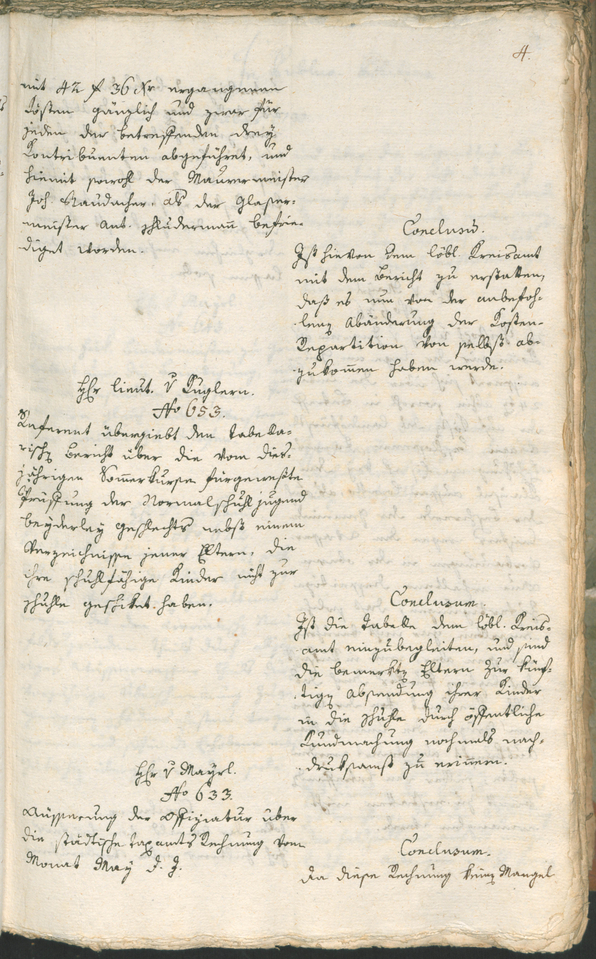 4.
mit 42 f 36 Xr ergangenen
Kösten gänzlich und zwar für
jeden der betreffenden drey
Kontribuenten abgeführet, und
hiemit sowohl der Maurermeister
Joh. Staudacher, als der Glaser-
meister Ant. Schudermañ befrie-
diget worden.
Conclusū.
Ist hievon dem löbl. Kreisamt
mit dem Bericht zu erstatten,
daß es nun von der anbefoh-
lenen Abänderung der Kosten-
Repartition von selbst ab-
zukommen haben werde.
Hhr lieut. v Kuglern.
No 653.
Referent übergiebt den tabella-
rischen Bericht über die vom dies-
jährigen Sommerkurse fürgewesste
Prüfung der Normalschuhljugend
beyderley geschlechts nebst einem
Verzeichnisse jener Eltern, die
ihre schuhlfähige Kinder nicht zur
schuhle geschiket haben.
Conclusum.
Ist die Tabelle dem löbl. Kreis-
amt einzubegleiten, und sind
die bemerkten Eltern zur künf-
tigen absendung ihrer Kinder
in die schuhle durch öffentliche
Kundmachung nochmals nach-
druksamst zu eriñern.
Hhr v Mayrl.
No 633.
Äusserung der Offiziatur über
die städtische taxamts Rechnung vom
Monat May d. J.
Conclusum.
da diese Rechnung keinen Mangel